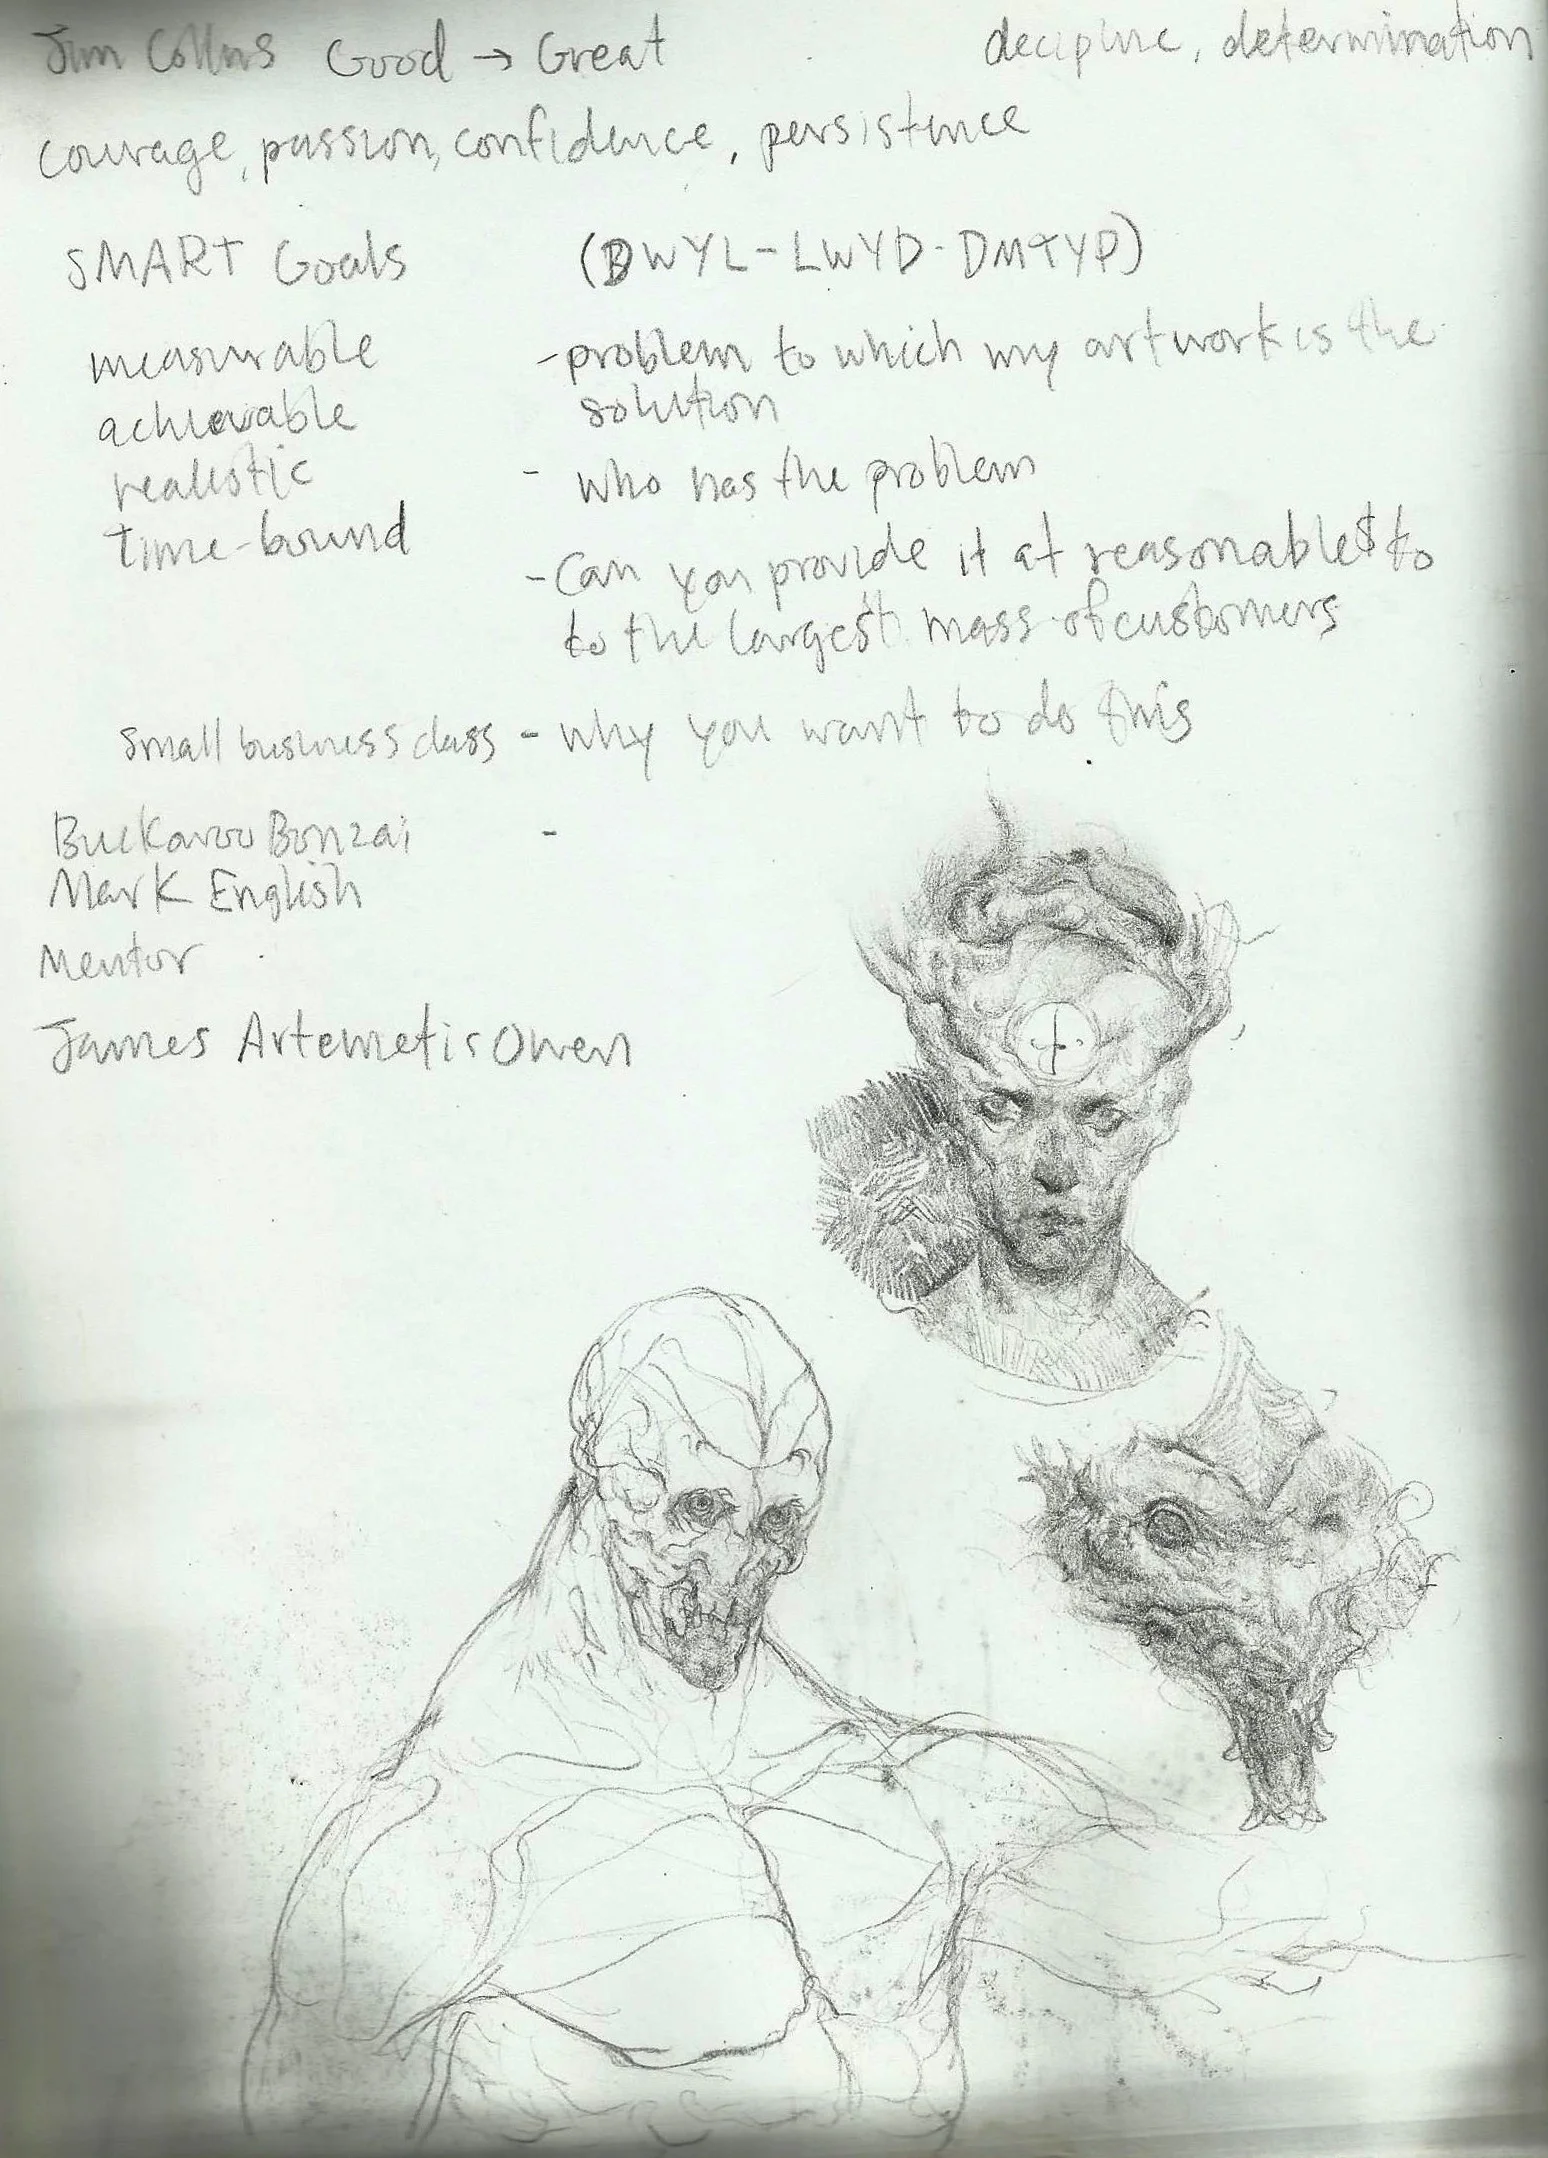 Jim Collins Good → Great
decipline, determination
courage, passion, confidence, persistence
SMART Goals
measurable
achievable
realistic
time-bound
(DWYL-LWYD-DMTYP)
-problem to which my artwork is the
solution
- who has the problem
-Can you provide it at reasonable $ to
to the largest mass of customers
small business class - why you want to do this
Buckaroo Bonzai -
Mark English
Mentor
James Artemetis Owen